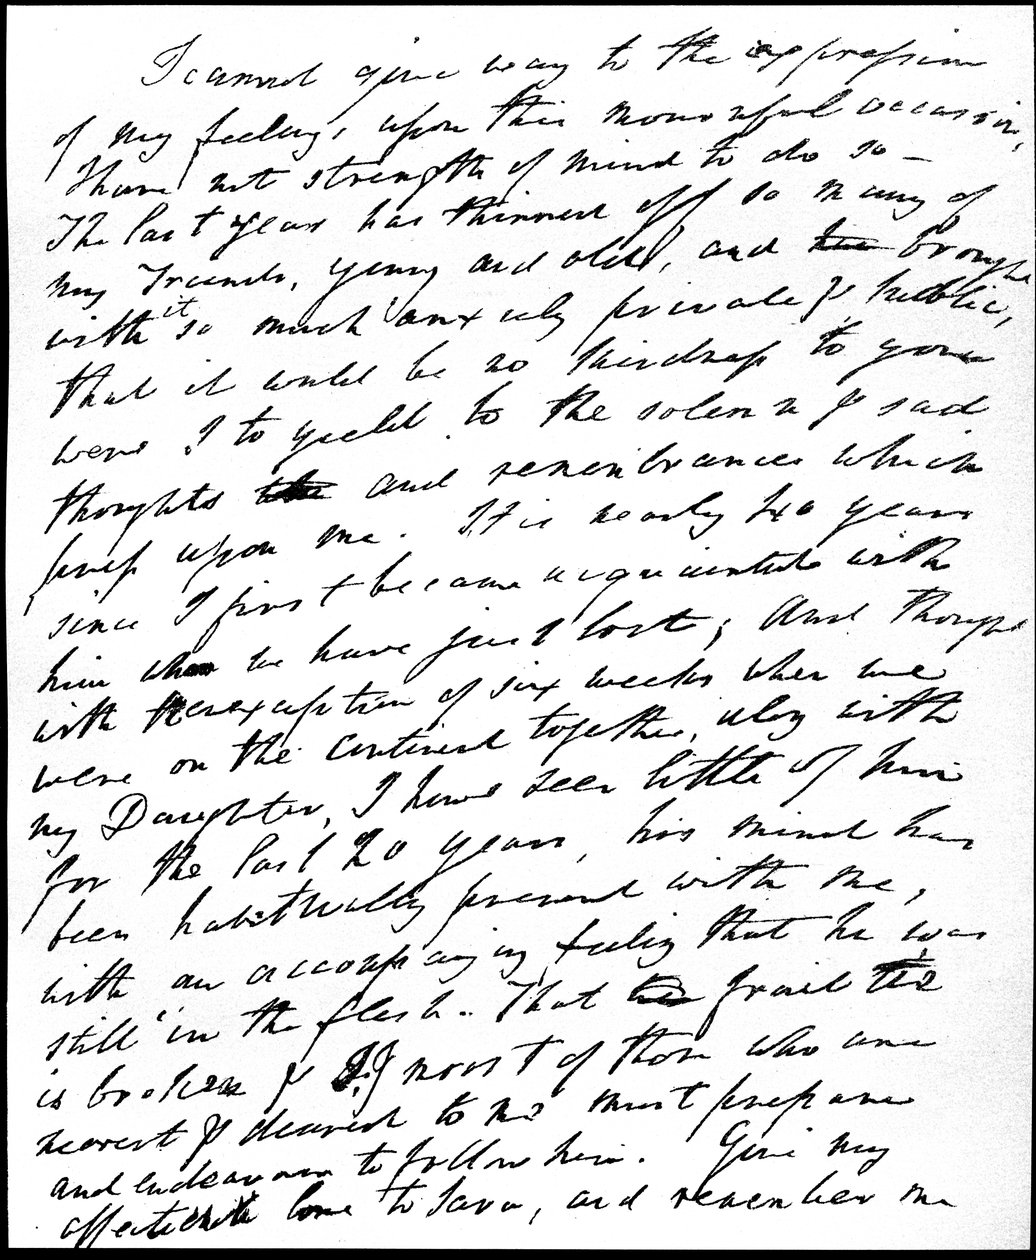 I cannot give way to the expression
of my feelings upon this mournful occasion,
I have not strength of mind to do so —
The last year has thinned off so many of
my Friends, young and old, and brought
with it so much anxiety private & public,
that it would be no kindness to you
were I to yield to the solemn & sad
thoughts and remembrances which
press upon me. It is nearly 40 years
since I first became acquainted with
him whom we have just lost; and though
with the exception of six weeks when we
were on the continent together, along with
my Daughter, I have seen little of him
for the last 20 years, his mind has
been habitually present with me,
with an accompanying feeling that he was
still in the flesh. That frail tie
is broken & I, & most of those who are
nearest & dearest to me must prepare
and endeavour to follow him. Give my
affectionate love to Sara, and remember me